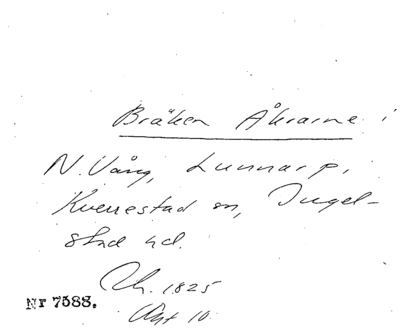 Bräken Åkrarne i
N. Vång, Lunnarp,
Kverrestad sn, Ingel-
stad hd.
1825
Akt 10.
Nr 7588.